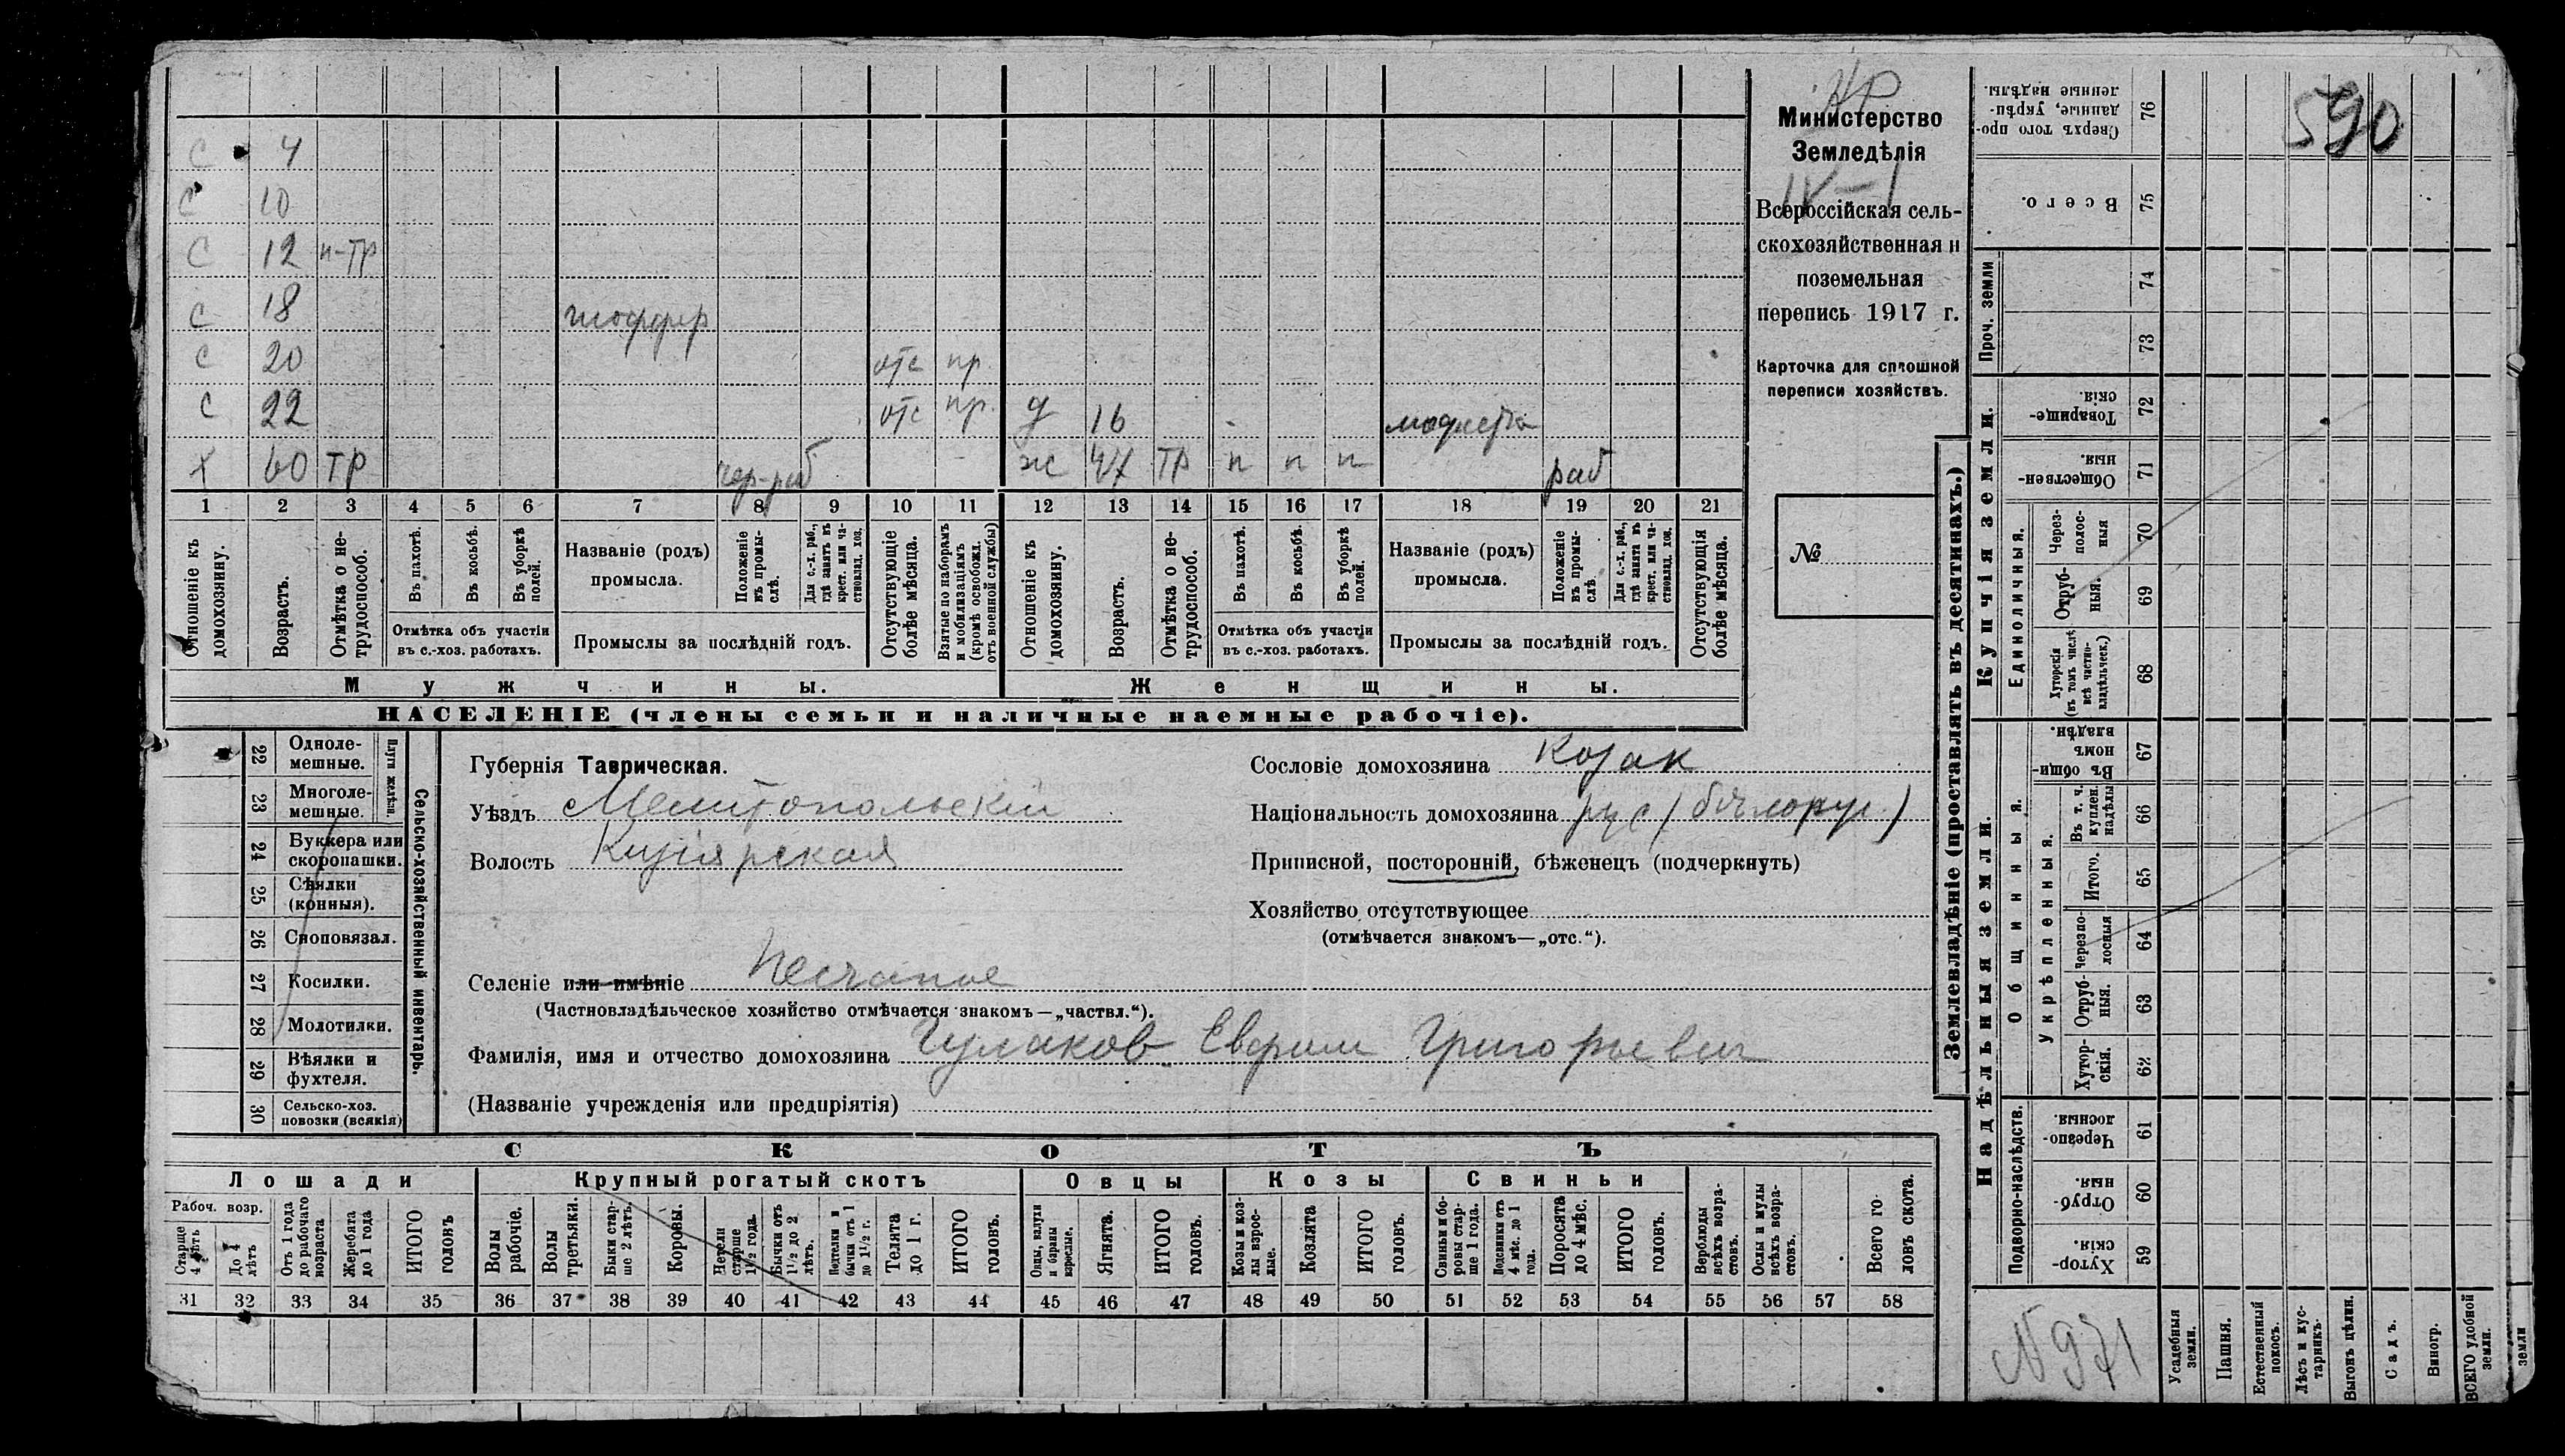 НР
Министерство
Земледѣлія
IV–I
Всероссійская сель-
скохозяйственная и
поземельная
перепись 1917 г.
Карточка для сплошной
переписи хозяйствъ.
№
590
с 4
с 10
с 12 н-тр
с 18 шоффер
с 20 отс пр.
с 22 отс пр. д 16 модистка
х 60 тр чер-раб ж 47 тр п п п раб
1 2 3 4 5 6 7 8 9 10 11 12 13 14 15 16 17 18 19 20 21
Отношеніе къ домохозяину.
Возрастъ.
Отмѣтка о не-трудоспособ.
Въ пахотѣ.
Въ косьбѣ.
Въ уборкѣ полей.
Отмѣтка объ участіи
въ с.-хоз. работахъ.
Названіе (родъ)
промысла.
Положеніе въ промы-слѣ.
Для с.-х. раб., гдѣ занятъ въ крест. или ча-стновлад. хоз.
Промыслы за послѣдній годъ.
Отсутствующіе болѣе мѣсяца.
Взятые по наборамъ и мобилизаціямъ (кромѣ освобожд. отъ военной службы)
Отношеніе къ домохозяину.
Возрастъ.
Отмѣтка о не-трудоспособ.
Въ пахотѣ.
Въ косьбѣ.
Въ уборкѣ полей.
Отмѣтка объ участіи
въ с.-хоз. работахъ.
Названіе (родъ)
промысла.
Положеніе въ промы-слѣ.
Для с.-х. раб., гдѣ занята въ крест. или ча-стновлад. хоз.
Промыслы за послѣдній годъ.
Отсутствующія болѣе мѣсяца.
Мужчины. Женщины.
НАСЕЛЕНІЕ (члены семьи и наличные наемные рабочіе).
Сельско-хозяйственный инвентарь.
Плуги желѣзн.
22 Одноле-мешные.
23 Многоле-мешные.
24 Буккера или скоропашки.
25 Сѣялки (конныя).
26 Сноповязал.
27 Косилки.
28 Молотилки.
29 Вѣялки и фухтеля.
30 Сельско-хоз. повозки (всякія)
Губернія Таврическая.
Уѣздъ Мелитопольскій
Волость Кизіярская
Сословіе домохозяина козак
Національность домохозяина рус (бѣлорус.)
Приписной, посторонній, бѣженецъ (подчеркнуть)
Хозяйство отсутствующее
(отмѣчается знакомъ—„отс.“).
Селеніе или имѣніе Песчаное
(Частновладѣльческое хозяйство отмѣчается знакомъ—„частвл.“).
Фамилія, имя и отчество домохозяина Гулаков Евфим Григорьевич
(Названіе учрежденія или предпріятія)
СКОТЪ
Лошади Крупный рогатый скотъ Овцы Козы Свиньи
Рабоч. возр.
Старше 4 лѣтъ
До 4 лѣтъ
Отъ 1 года до рабочаго возраста
Жеребята до 1 года
ИТОГО головъ
Волы рабочіе.
Волы третьяки.
Быки стар-ше 2 лѣтъ.
Коровы.
Нетели старше 1½ года.
Бычки отъ 1½ до 2 лѣтъ.
Подтелки и бычки отъ 1 до 1½ г.
Телята до 1 г.
ИТОГО головъ.
Овцы, валухи и бараны взрослые.
Ягнята.
ИТОГО головъ.
Козы и коз-лы взрос-лые.
Козлята
ИТОГО головъ.
Свиньи и бо-ровы стар-ше 1 года.
Подсвинки отъ 4 мѣс. до 1 года.
Поросята до 4 мѣс.
ИТОГО головъ.
Верблюды всѣхъ возра-стовъ.
Ослы и мулы всѣхъ возра-стовъ.
Всего го-ловъ скота.
31 32 33 34 35 36 37 38 39 40 41 42 43 44 45 46 47 48 49 50 51 52 53 54 55 56 57 58
Землевладѣніе (проставлять въ десятинахъ.)
Купчія земли.
Проч. земли
Единоличныя.
Надѣльныя земли.
Общинныя.
Укрѣпленныя.
Подворно-наслѣдств.
Сверхъ того про-данные, укрѣп-ленные надѣлы. 76
Всего. 75
74
73
Товарище-скія. 72
Обществен-ныя. 71
Через-полос-ныя 70
Отруб-ныя. 69
Хуторскія (въ томъ числѣ всѣ частно-владѣльческ.) 68
Въ общин-номъ владѣн. 67
Въ т. ч. куплен. надѣлы 66
Итого. 65
Черезпо-лосныя 64
Отруб-ныя. 63
Хутор-скія. 62
Черезпо-лосныя 61
Отруб-ныя. 60
Хутор-скія. 59
№ 971
Усадебныя земли.
Пашня.
Естественный покосъ.
Лѣсъ и кус-тарникъ.
Выгонъ цѣлин.
Садъ.
Виногр.
ВСЕГО удобной земли.
земли